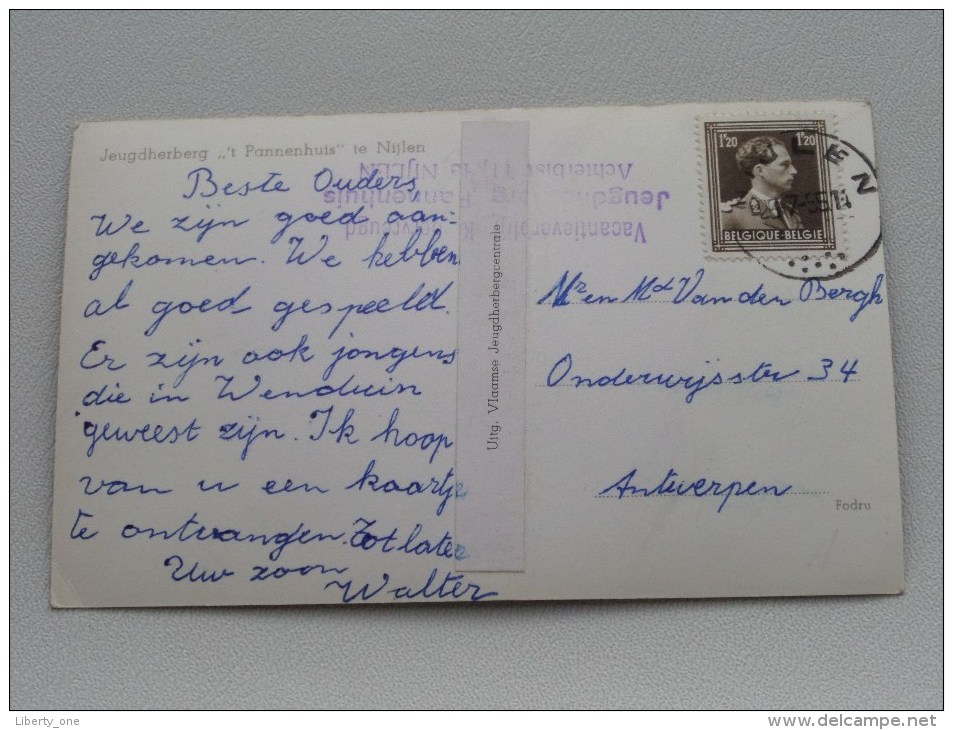 Jeugdherberg „'t Pannenhuis" te Nijlen
Beste Ouders,
We zijn goed aan-
gekomen. We hebben
al goed gespeeld.
Er zijn ook jongens
die in Wenduin
geweest zijn. Ik hoop
van u een kaartje
te ontvangen. Tot later
Uw zoon
Walter
Uitg. Vlaamse Jeugdherbergcentrale
Jeugdherberg Pannenhuis
NIJLEN
1F20 1F20
BELGIQUE-BELGIE
Mr en Md Van den Bergh
Onderwijsstr 34
Antwerpen
Fodru
Liberty_one
www.delcampe.net